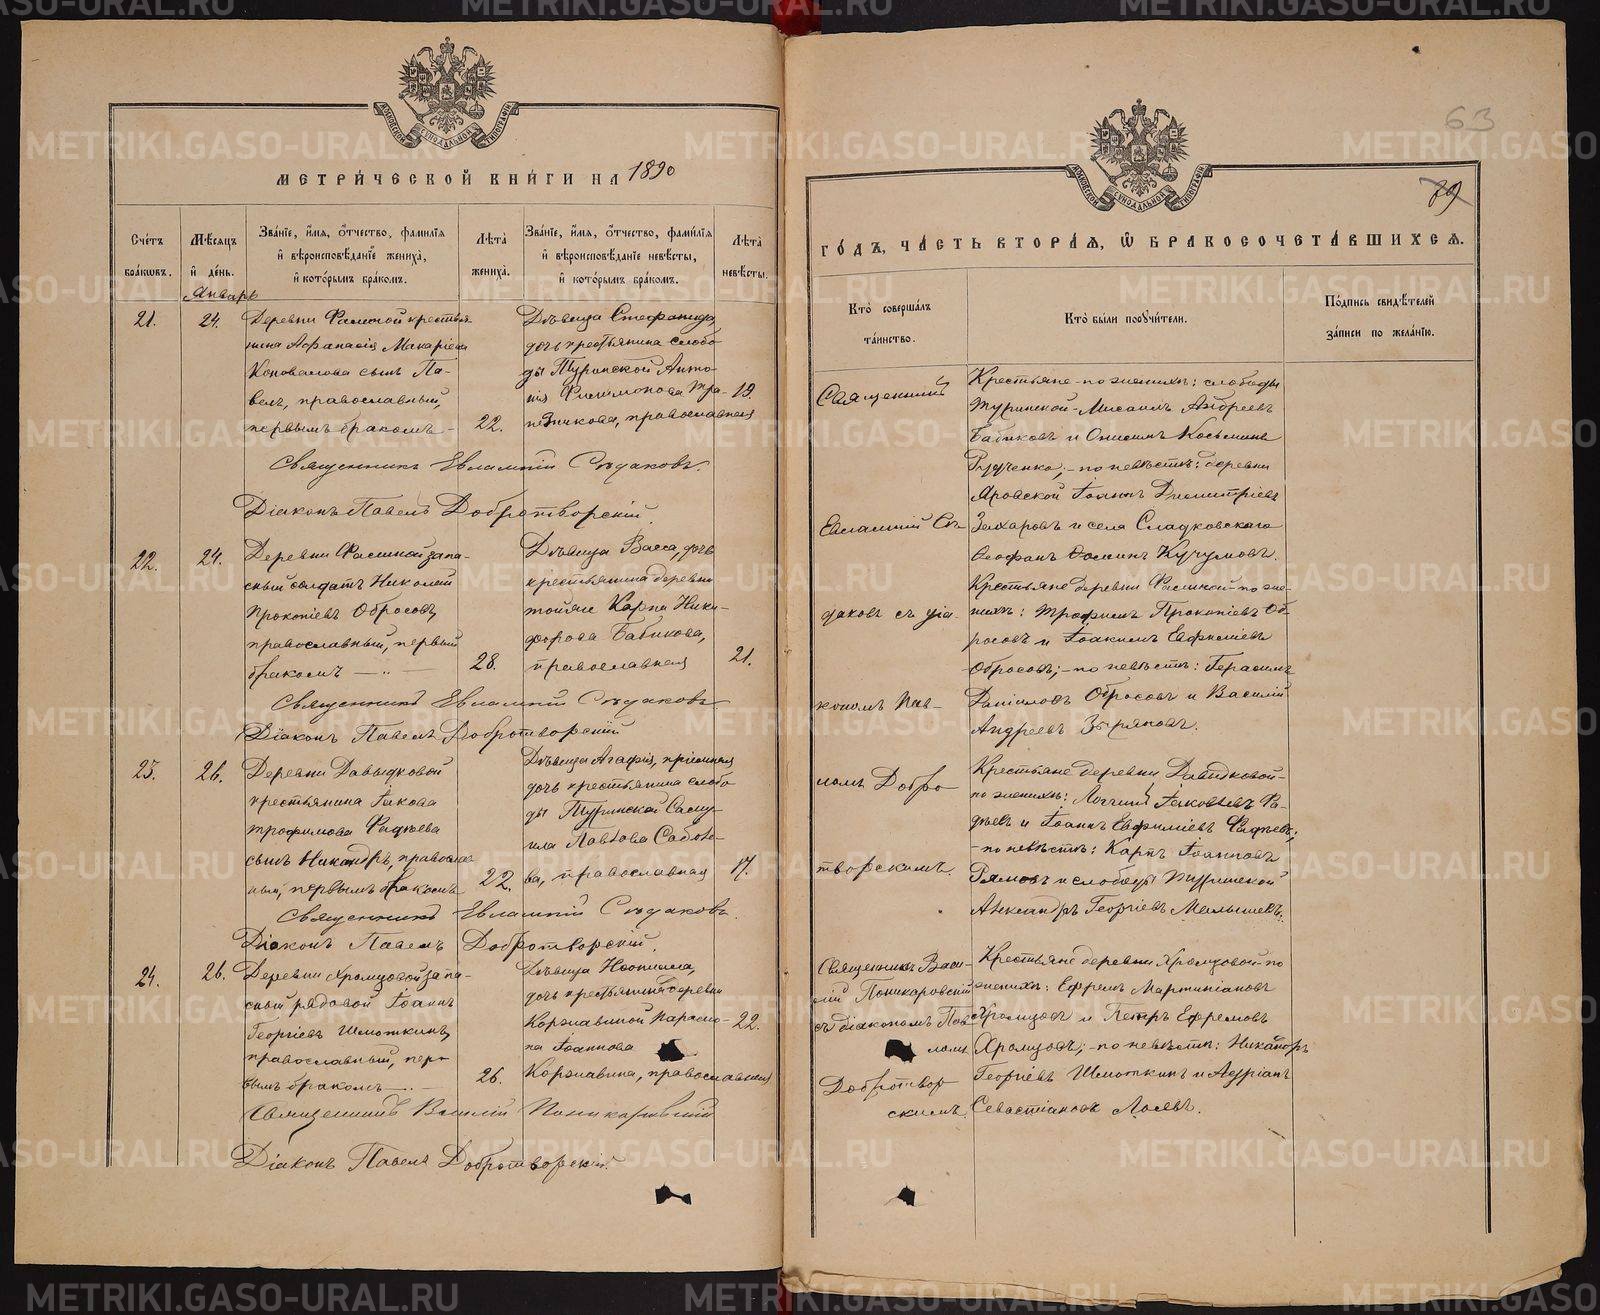 МЕТРИЧЕСКОЙ КНИГИ НА 1890
Счетъ браковъ.
Мѣсяцъ и день.
Званіе, имя, отчество, фамилія и вѣроисповѣданіе жениха, и которымъ бракомъ.
Лѣта жениха.
Званіе, имя, отчество, фамилія и вѣроисповѣданіе невѣсты, и которымъ бракомъ.
Лѣта невѣсты.
Январь
21.
24.
Деревни
крестья-
нина Афанасія Макаріева
Коновалова сынъ Па-
велъ, православный,
первымъ бракомъ
22.
Дѣвица Стефанида,
дочь крестьянина слобо-
ды Туринской Анто-
нія Филимонова
православная
19.
Священникъ Евлампій Сѣдаковъ.
Діаконъ Павелъ Добротворскій.
22.
24.
Деревни
запа-
сный солдатъ Николай
Прокопіевъ Обросовъ,
православный, первый
бракомъ
28.
Дѣвица Васса, дочь
крестьянина деревни
тойже Карпа Ники-
форова Бабикова,
православная
21.
Священникъ Евлампій Сѣдаковъ
Діаконъ Павелъ Добротворскій
23.
26.
Деревни Давыдковой
крестьянина Іакова
Трофимова Фадѣева
сынъ Никандръ, православ-
ный, первымъ бракомъ
22.
Дѣвица Агафія, пріемная
дочь крестьянина слобо-
ды Туринской Саму-
ила Павлова
православная
17.
Священникъ Евлампій Сѣдаковъ.
Діаконъ Павелъ Добротворскій.
24.
26.
Деревни Храмцовой запа-
сный рядовой Іоаннъ
Георгіевъ Шмоткинъ,
православный, пер-
вымъ бракомъ
26.
Дѣвица
дочь крестьянина деревни
Коржавиной
Іоаннова
Коржавина, православная
22.
Священникъ Василій Поникаровскій
Діаконъ Павелъ Добротворскій.
63
79
ГОДЪ, ЧАСТЬ ВТОРАЯ, Ѡ БРАКОСОЧЕТАВШИХСЯ.
Кто совершалъ таинство.
Кто были поручители.
Подпись свидѣтелей записи по желанію.
Священникъ
Евлампій Сѣ-
даковъ съ діа-
кономъ Пав-
ломъ Добро
творскимъ.
Крестьяне по женихѣ: слободы
Туринской Михаилъ Андреевъ
Бабиковъ и Онисимъ Косьминъ
Рудченко; по невѣстѣ: деревни
Яровской Іоаннъ Димитріевъ
Захаровъ и села Сладковскаго
Ѳеофанъ Ѳоминъ Кучумовъ.
Крестьяне деревни
по же-
нихѣ: Трофимъ Прокопіевъ Об-
росовъ и Іоакимъ Евфиміевъ
Обросовъ; по невѣстѣ: Герасимъ
Даніиловъ Обросовъ и Василій
Андреевъ Зыряновъ.
Крестьяне деревни Давыдковой
по женихѣ: Логгинъ Іаковлевъ Фа-
дѣевъ и Іоаннъ Евфиміевъ Фадѣевъ;
по невѣстѣ: Карпъ Іоанновъ
и слободы Туринской
Александръ Георгіевъ Малышевъ.
Священникъ Васи-
лій Поникаровскій
съ діакономъ Пав-
ломъ
Добротвор
скимъ.
Крестьяне деревни Храмцовой по
женихѣ: Ефремъ Мартиніановъ
Храмцовъ и Петръ Ефремовъ
Храмцовъ; по невѣстѣ: Никаноръ
Георгіевъ Шмоткинъ и Адріанъ
Севастіановъ
METRIKI.GASO-URAL.RU